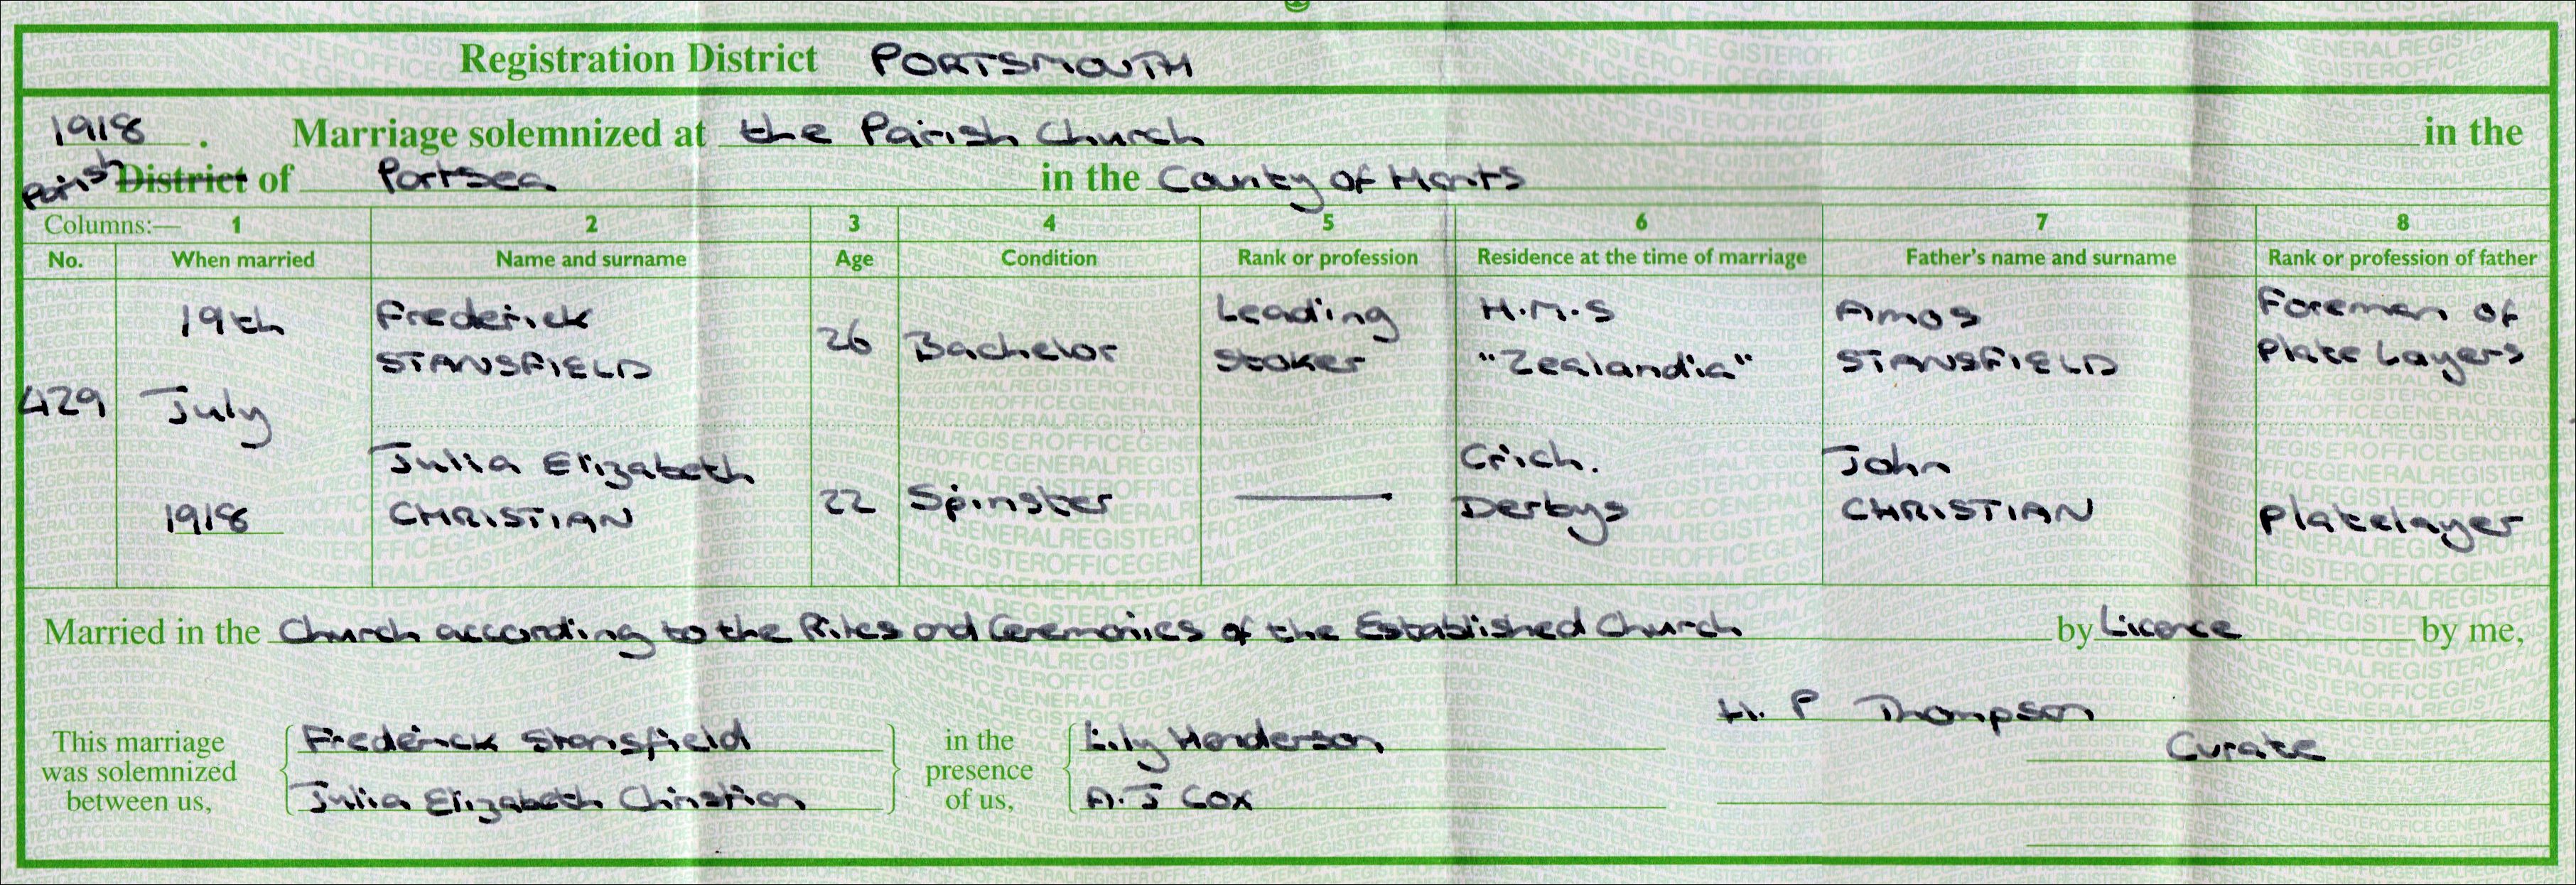 Registration District PORTSMOUTH
1918 . Marriage solemnized at the Parish Church in the
Parish District of Portsea in the County of Hants
Columns:— 1 2 3 4 5 6 7 8
No. When married Name and surname Age Condition Rank or profession Residence at the time of marriage Father's name and surname Rank or profession of father
429 19th July 1918
Frederick STANSFIELD 26 Bachelor Leading Stoker H.M.S "Zealandia" Amos STANSFIELD Foreman of Plate Layers
Julia Elizabeth CHRISTIAN 22 Spinster — Crich. Derbys John CHRISTIAN Platelayer
Married in the Church according to the Rites and Ceremonies of the Established Church by Licence by me,
H. P Thompson
Curate
This marriage was solemnized between us,
Frederick Stansfield
Julia Elizabeth Christian
in the presence of us,
Lily Henderson
A. J Cox